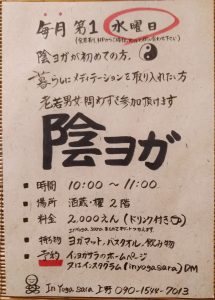 毎月 第1 水曜日
陰ヨガが初めての方、
暮らしにメディテーションを取り入れたい方
老若男女問わずご参加頂けます
陰ヨガ
■ 時間 10:00 〜 11:00
■ 場所 酒蔵・櫂 2階
■ 料金 2,000えん (ドリンク付き)
■ 持ち物 ヨガマット、バスタオル、飲み物
■ 予約 インヨガサラのホームページ
又はインスタグラム (inyogasara) DM
In Yoga Sara 上野 090-1544-7013